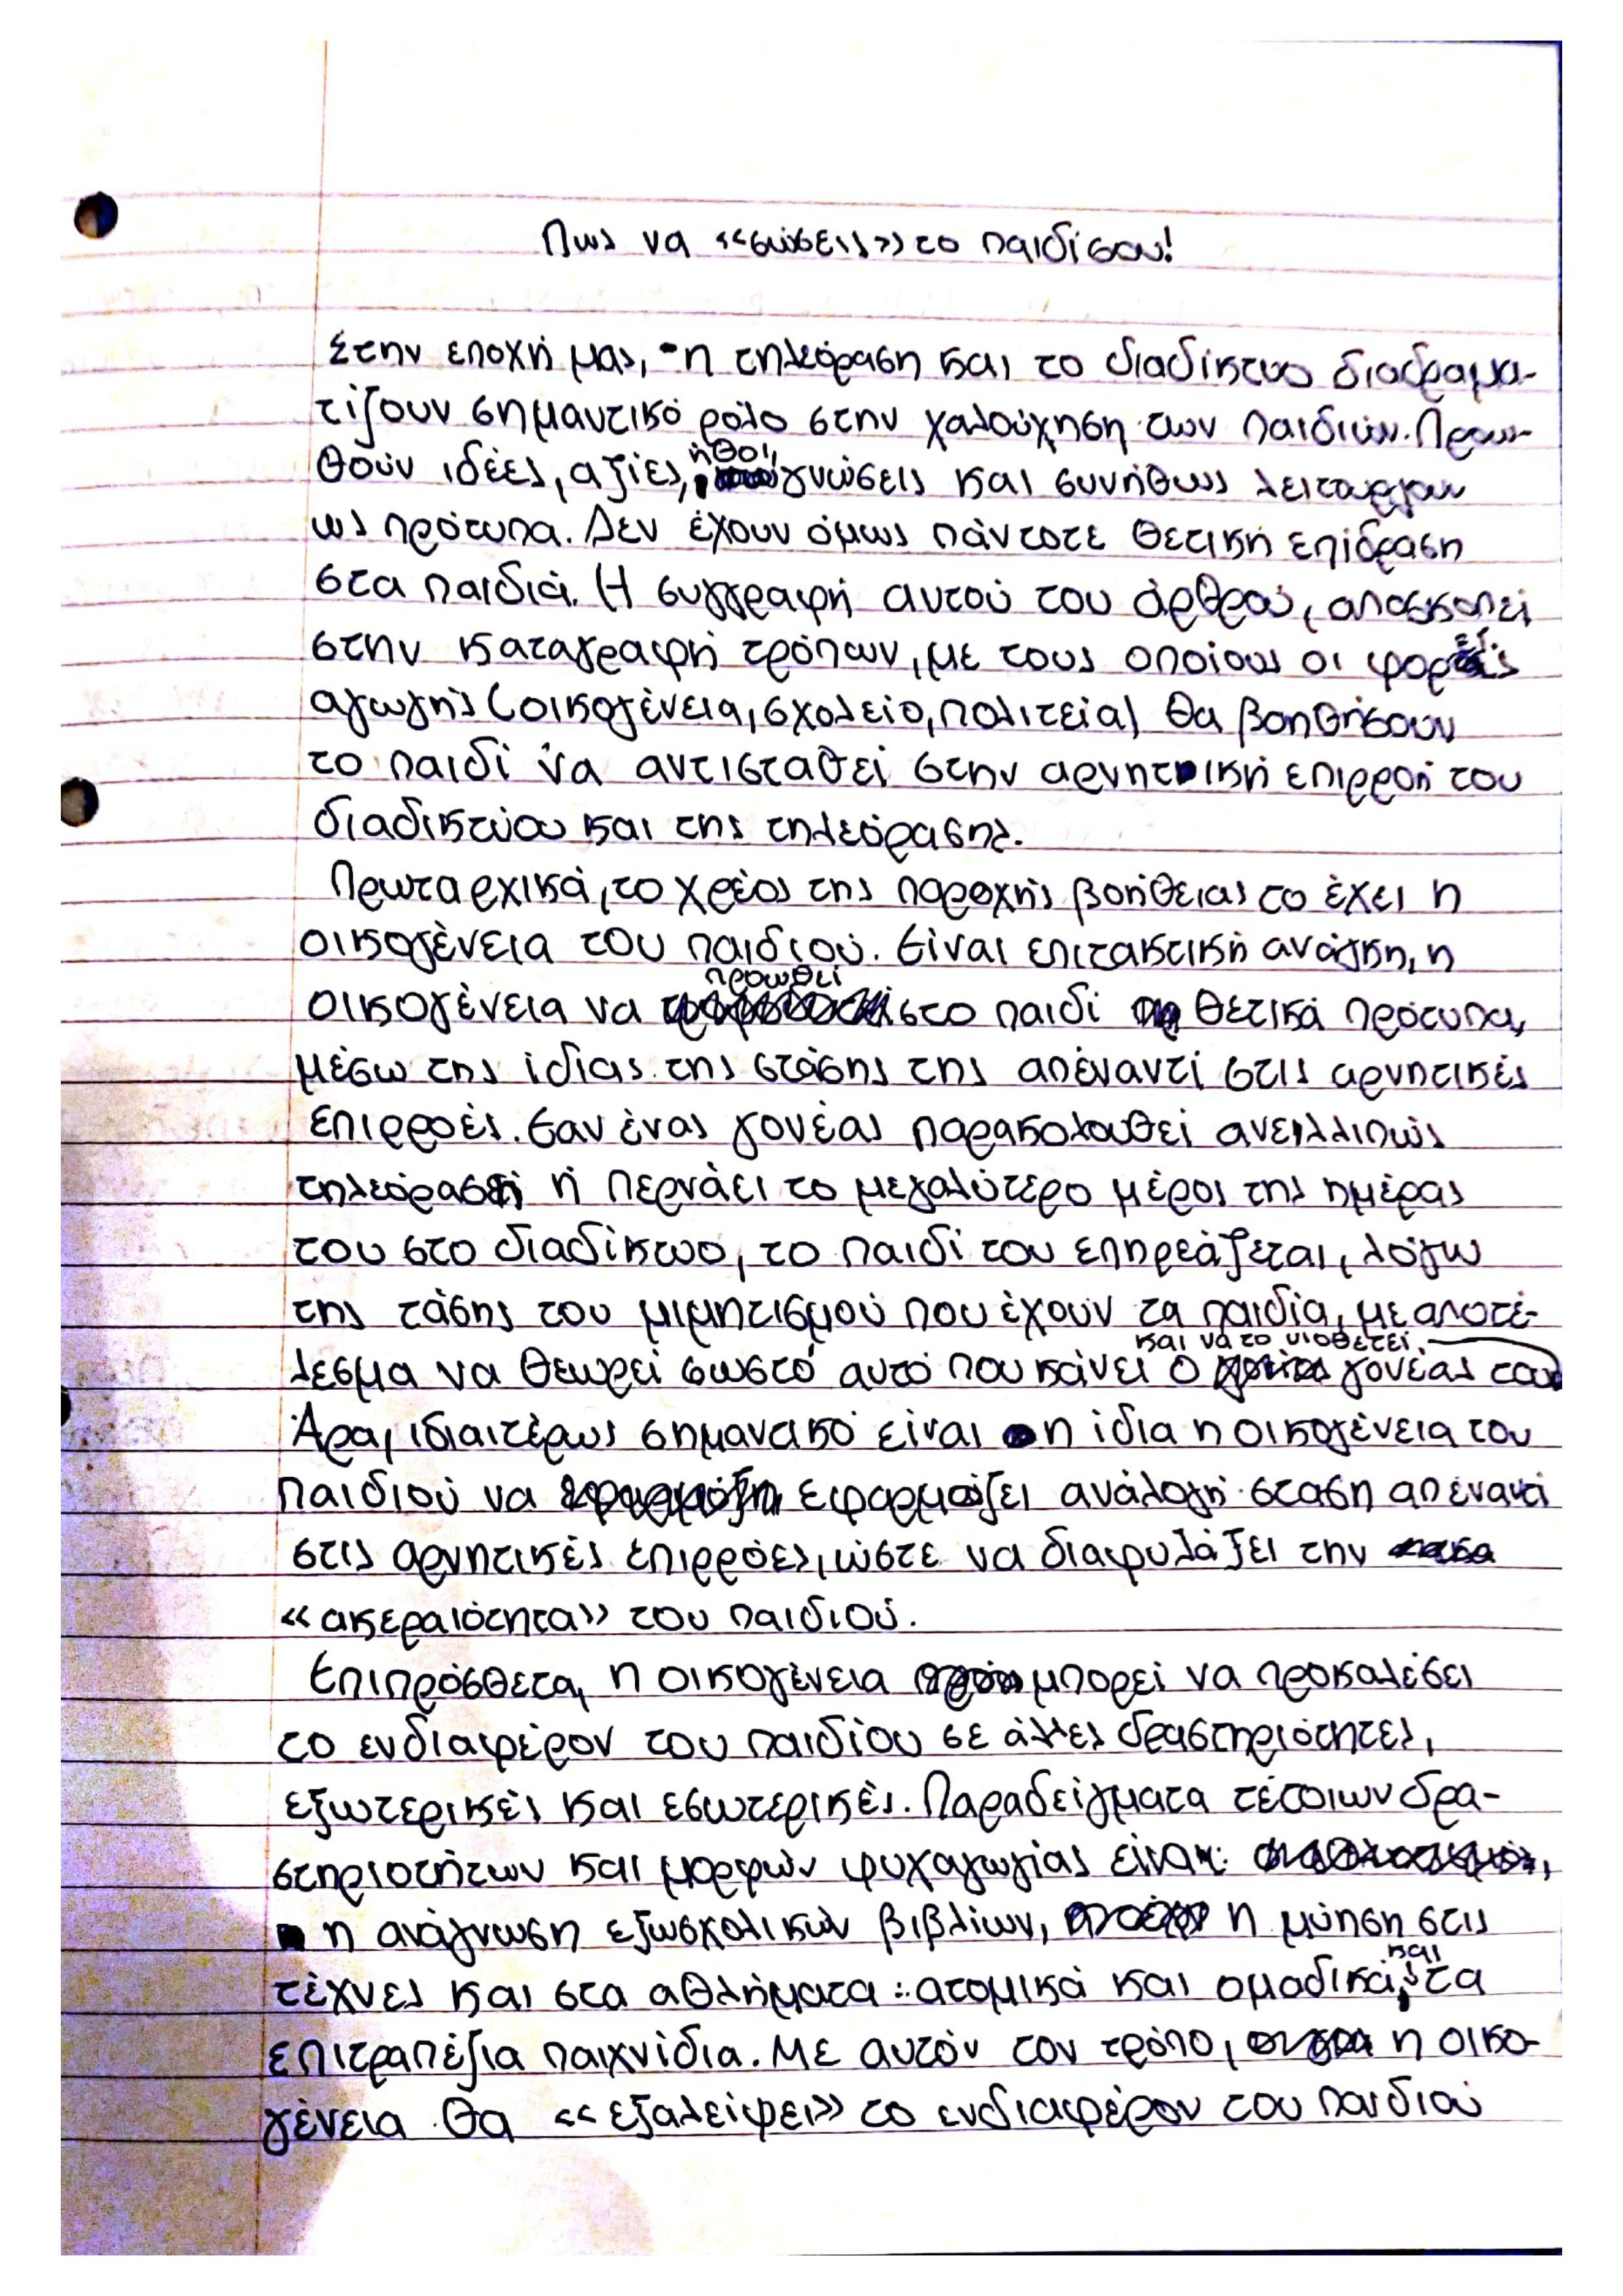 Πως να «σώσεις» το παιδί σου!
Στην εποχή μας, η τηλεόραση και το διαδίκτυο διαδραμα-
τίζουν σημαντικό ρόλο στην χαλούχηση των παιδιών. Προω-
θούν ιδέες, αξίες, ήθοι, γνώσεις και συνήθως λειτουργούν
ως πρότυπα. Δεν έχουν όμως πάντοτε θετική επίδραση
στα παιδιά. Η συγγραφή αυτού του άρθρου, αποσκοπεί
στην καταγραφή τρόπων, με τους οποίους οι φορείς
αγωγής (οικογένεια, σχολείο, πολιτεία) θα βοηθήσουν
το παιδί να αντισταθεί στην αρνητική επιρροή του
διαδικτύου και της τηλεόρασης.
Πρωταρχικά, το χρέος της παροχής βοήθειας το έχει η
οικογένεια του παιδιού. Είναι επιτακτική ανάγκη, η
οικογένεια να προωθεί στο παιδί θετικά πρότυπα,
μέσω της ίδιας της στάσης της απέναντί στις αρνητικές
επιρροές. Εαν ένας γονέας παρακολουθεί ανελλιπώς
τηλεόραση ή περνάει το μεγαλύτερο μέρος της ημέρας
του στο διαδίκτυο, το παιδί του επηρεάζεται, λόγω
της τάσης του μιμητισμού που έχουν τα παιδία, με αποτέ-
λεσμα να θεωρεί σωστό αυτό που κάνει ο γονέας του και να το υιοθετεί.
Άρα, ιδιαιτέρως σημαντικό είναι η ίδια η οικογένεια του
παιδιού να εφαρμόζει ανάλογή σταση απέναντι
στις αρνητικές επιρρόες, ώστε να διαφυλάξει την
«ακεραιότητα» του παιδιού.
Επιπρόσθετα, η οικογένεια μπορεί να προκαλέσει
το ενδιαφέρον του παιδίου σε άλλες δραστηριότητες,
εξωτερικές και εσωτερικές. Παραδείγματα τέτοιων δρα-
στηριοτήτων και μορφών ψυχαγωγίας είναι:
η ανάγνωση εξωσχολικών βιβλίων, η μύηση στις
τέχνες και στα αθλήματα: ατομικά και ομαδικά, και τα
επιτραπέζια παιχνίδια. Με αυτόν τον τρόπο, η οικο-
γένεια θα «εξαλείψει» το ενδιαφέρον του παιδιού